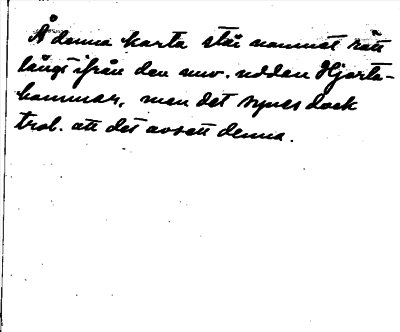 Å denna karta står namnet rätt
långt ifrån den nuv. udden Hjorta-
hammar, men det synes dock
trol. att det avsett denna.